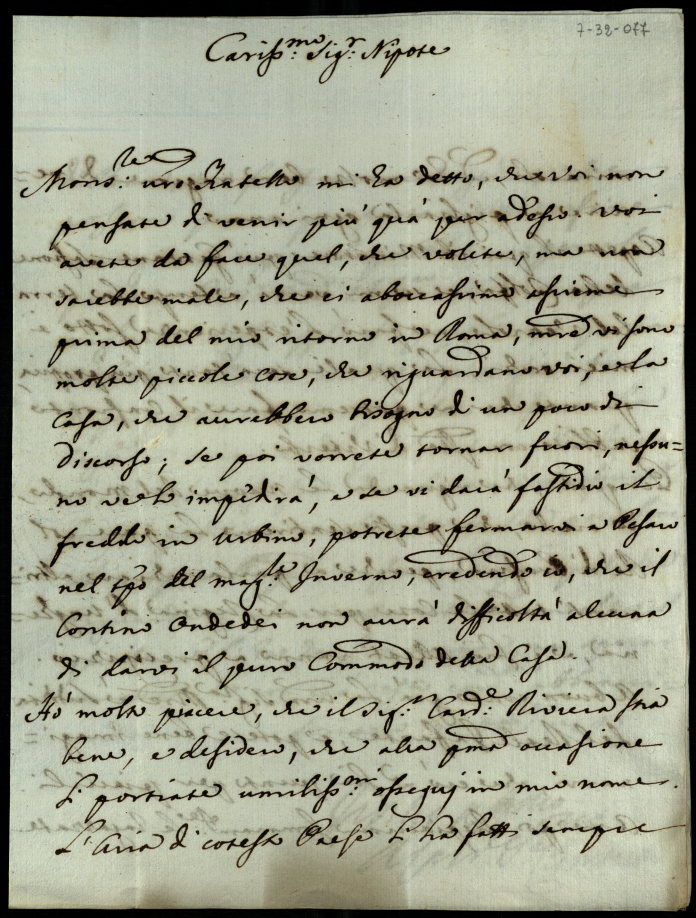 7-32-077
Cariss.mo Sig.r Nipote
Mons.re vro Fratello mi ha detto, che voi non
pensate di venir più quà per adesso. Voi
avete da fare quel, che volete, ma non
sarebbe male, che ci aboccassimo assieme
prima del mio ritorno in Roma, mre vi sono
molte piccole cose, che riguardano voi, e la
Casa, che avrebbero bisogno di un poco di
discorso; se poi vorrete tornar fuori, nessu=
no ve lo impedirà, e se vi darà fastidio il
freddo in Urbino, potrete fermarvi a Pesaro
nel tpo del mag.re Inverno, credendo io, che il
Contino Ondedei non avrà difficoltà alcuna
di darvi il puro Commodo della Casa.
Hò molto piacere, che il Sig.r Card.e Riviera stia
bene, e desidero, che alla pma occasione
li portiate umiliss.mi ossequj in mio nome.
L'Aria di cotesto Paese li ha fatti sempre